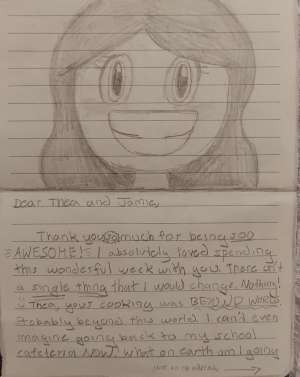 Dear Thea and Jamie,
Thank you so much for being SOO
AWESOME! I absolutely loved spending
this wonderful week with you. There isn't
a single thing that I would change. Nothing!
Thea, your cooking was BEYOND
Probably beyond this world. I can't even
imagine going back to my school
cafeteria NOW. What on earth am I going